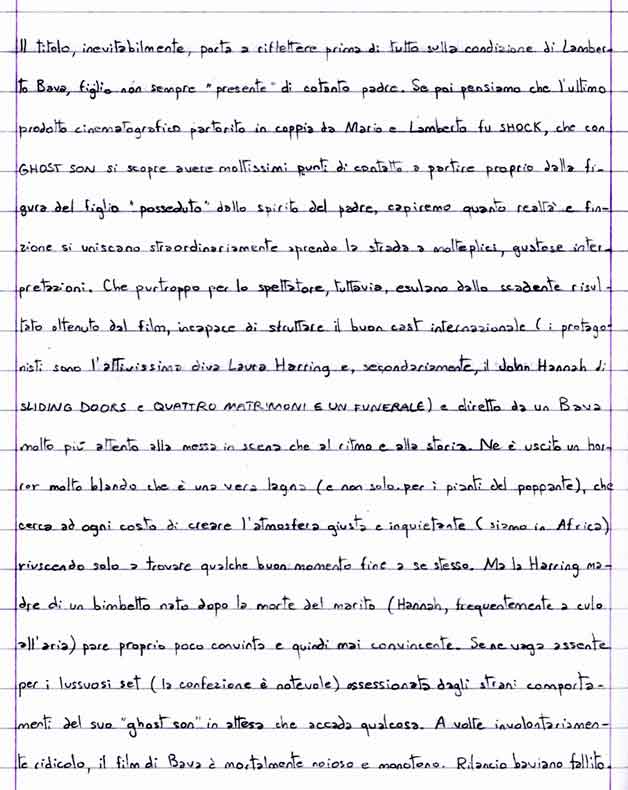 Il titolo, inevitabilmente, porta a riflettere prima di tutto sulla condizione di Lamber-
to Bava, figlio non sempre "presente" di cotanto padre. Se poi pensiamo che l'ultimo
prodotto cinematografico partorito in coppia da Mario e Lamberto fu SHOCK, che con
GHOST SON si scopre avere moltissimi punti di contatto a partire proprio dalla fi-
gura del figlio "posseduto" dallo spirito del padre, capiremo quanto realtà e fin-
zione si uniscano straordinariamente aprendo la strada a molteplici, gustose inter-
pretazioni. Che purtroppo per lo spettatore, tuttavia, esulano dallo scadente risul-
tato ottenuto dal film, incapace di sfruttare il buon cast internazionale (i protago-
nisti sono l'attivissima diva Laura Harring e, secondariamente, il John Hannah di
SLIDING DOORS e QUATTRO MATRIMONI E UN FUNERALE) e diretto da un Bava
molto più attento alla messa in scena che al ritmo e alla storia. Ne è uscito un hor-
ror molto blando che è una vera lagna (e non solo per i pianti del poppante), che
cerca ad ogni costo di creare l'atmosfera giusta e inquietante (siamo in Africa)
riuscendo solo a trovare qualche buon momento fine a se stesso. Ma la Harring ma-
dre di un bimbetto nato dopo la morte del marito (Hannah, frequentemente a culo
all'aria) pare proprio poco convinta e quindi mai convincente. Se ne vaga assente
per i lussuosi set (la confezione è notevole) ossessionata dagli strani comporta-
menti del suo "ghost son" in attesa che accada qualcosa. A volte involontariamen-
te ridicolo, il film di Bava è mortalmente noioso e monotono. Rilancio baviano fallito.